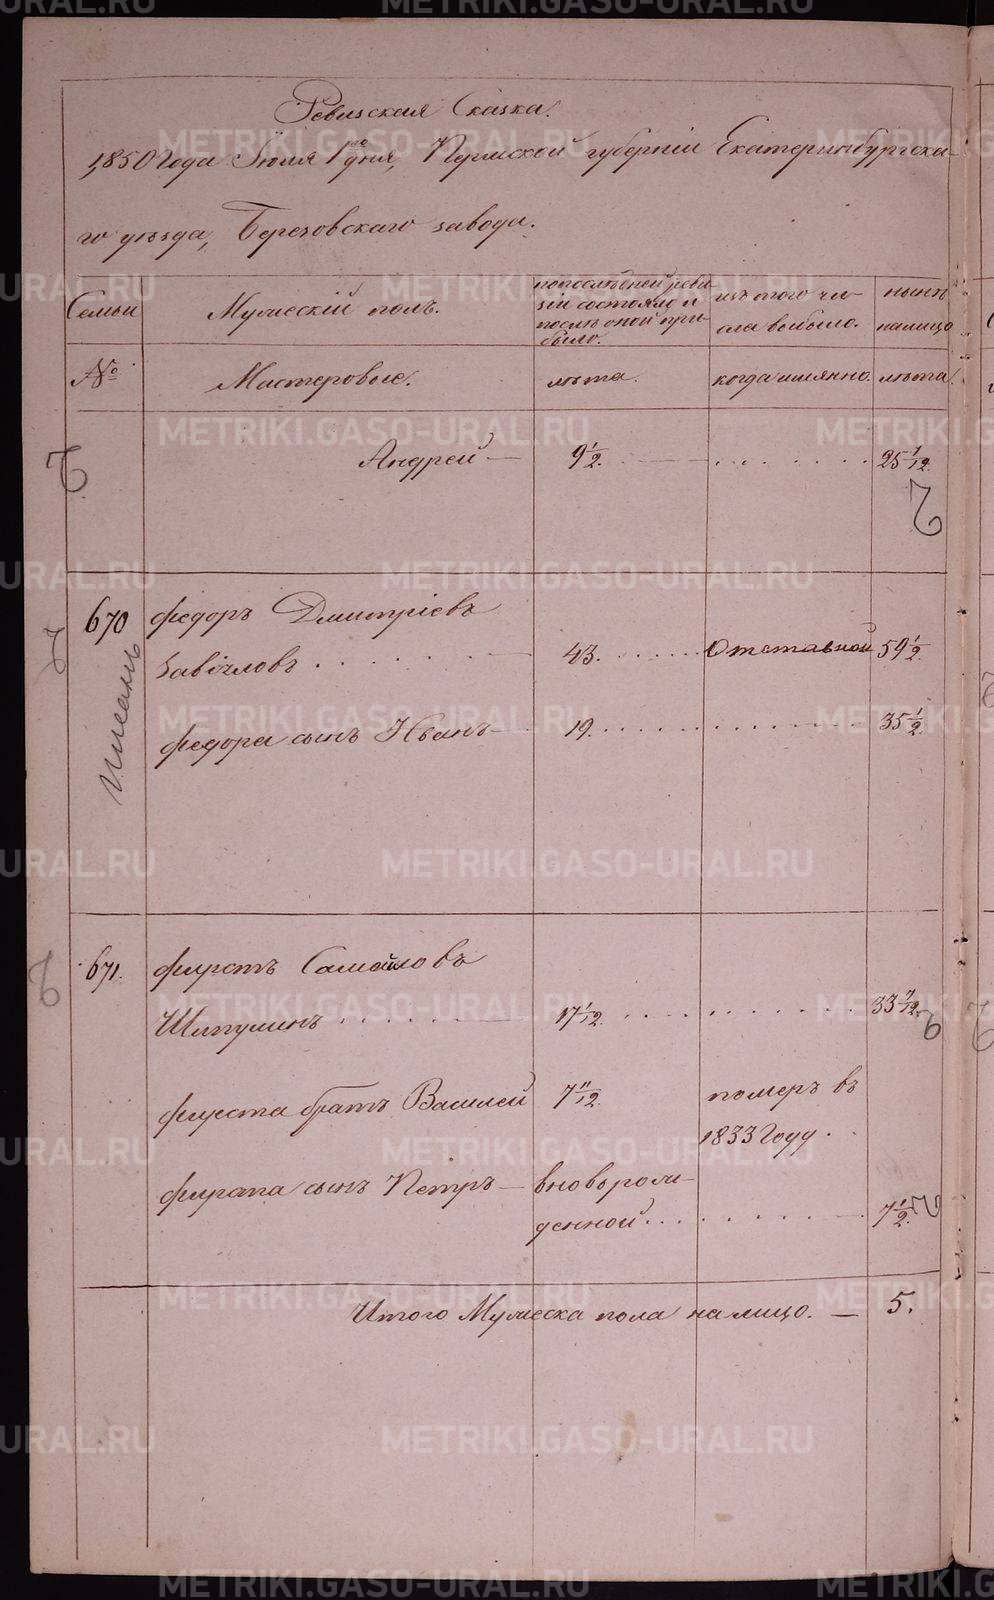 Ревизская Сказка.
1850 Года Июля 1го дня, Пермской губерніи Екатеринбургска-
го уѣзда, Березовскаго завода.
Семьи
Мужескій полъ.
попослѣдней реви-
зіи состояло и
послѣ оной при-
было.
изъ того чи-
сла выбыло.
нынѣ
налицо
№
Мастеровые.
лѣта.
когда имянно.
лѣта.
Андрей — 9 1/2. 25 1/12.
670 Федоръ Дмитріевъ
43. Отставной 59 1/2.
Федора сынъ Иванъ — 19. 35 1/2.
671. Фирстъ Самойловъ
17 1/12. 33 7/12.
Фирста братъ Василей 7 11/12. померъ въ
1833 Году.
Фирста сынъ Петръ — вновьрож-
денной 7 1/2.
Итого Мужеска пола налицо. — 5.
METRIKI.GASO-URAL.RU